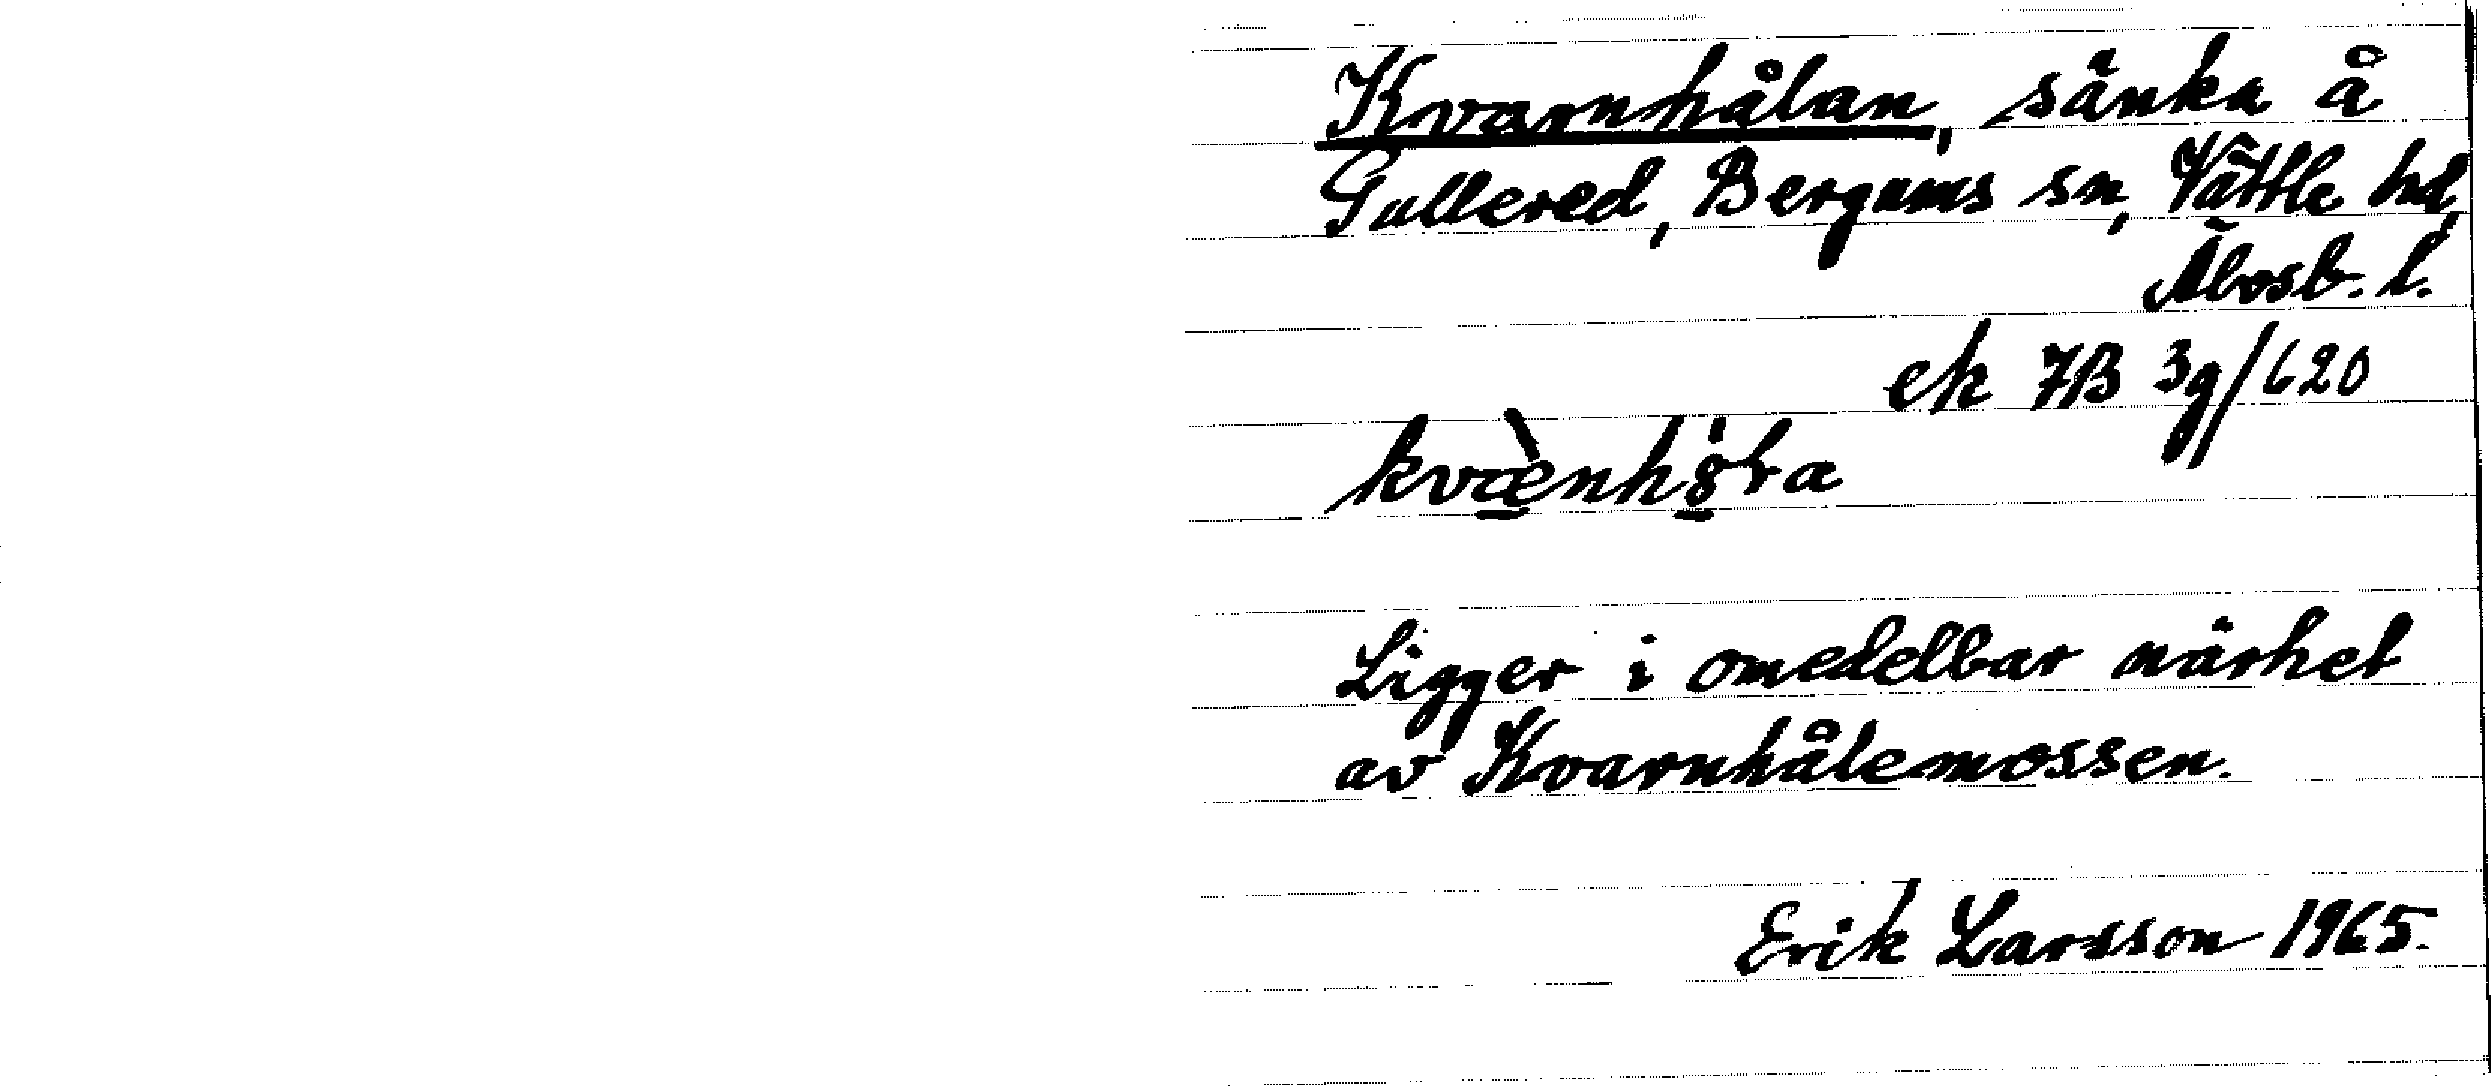 Kvarnhålan, sänka å
Gullered, Bergums sn, Vättle hd,
Älvsb. l.
ek 7B 3g/620
Ligger i omedelbar närhet
av Kvarnhålemossen.
Erik Larsson 1965.